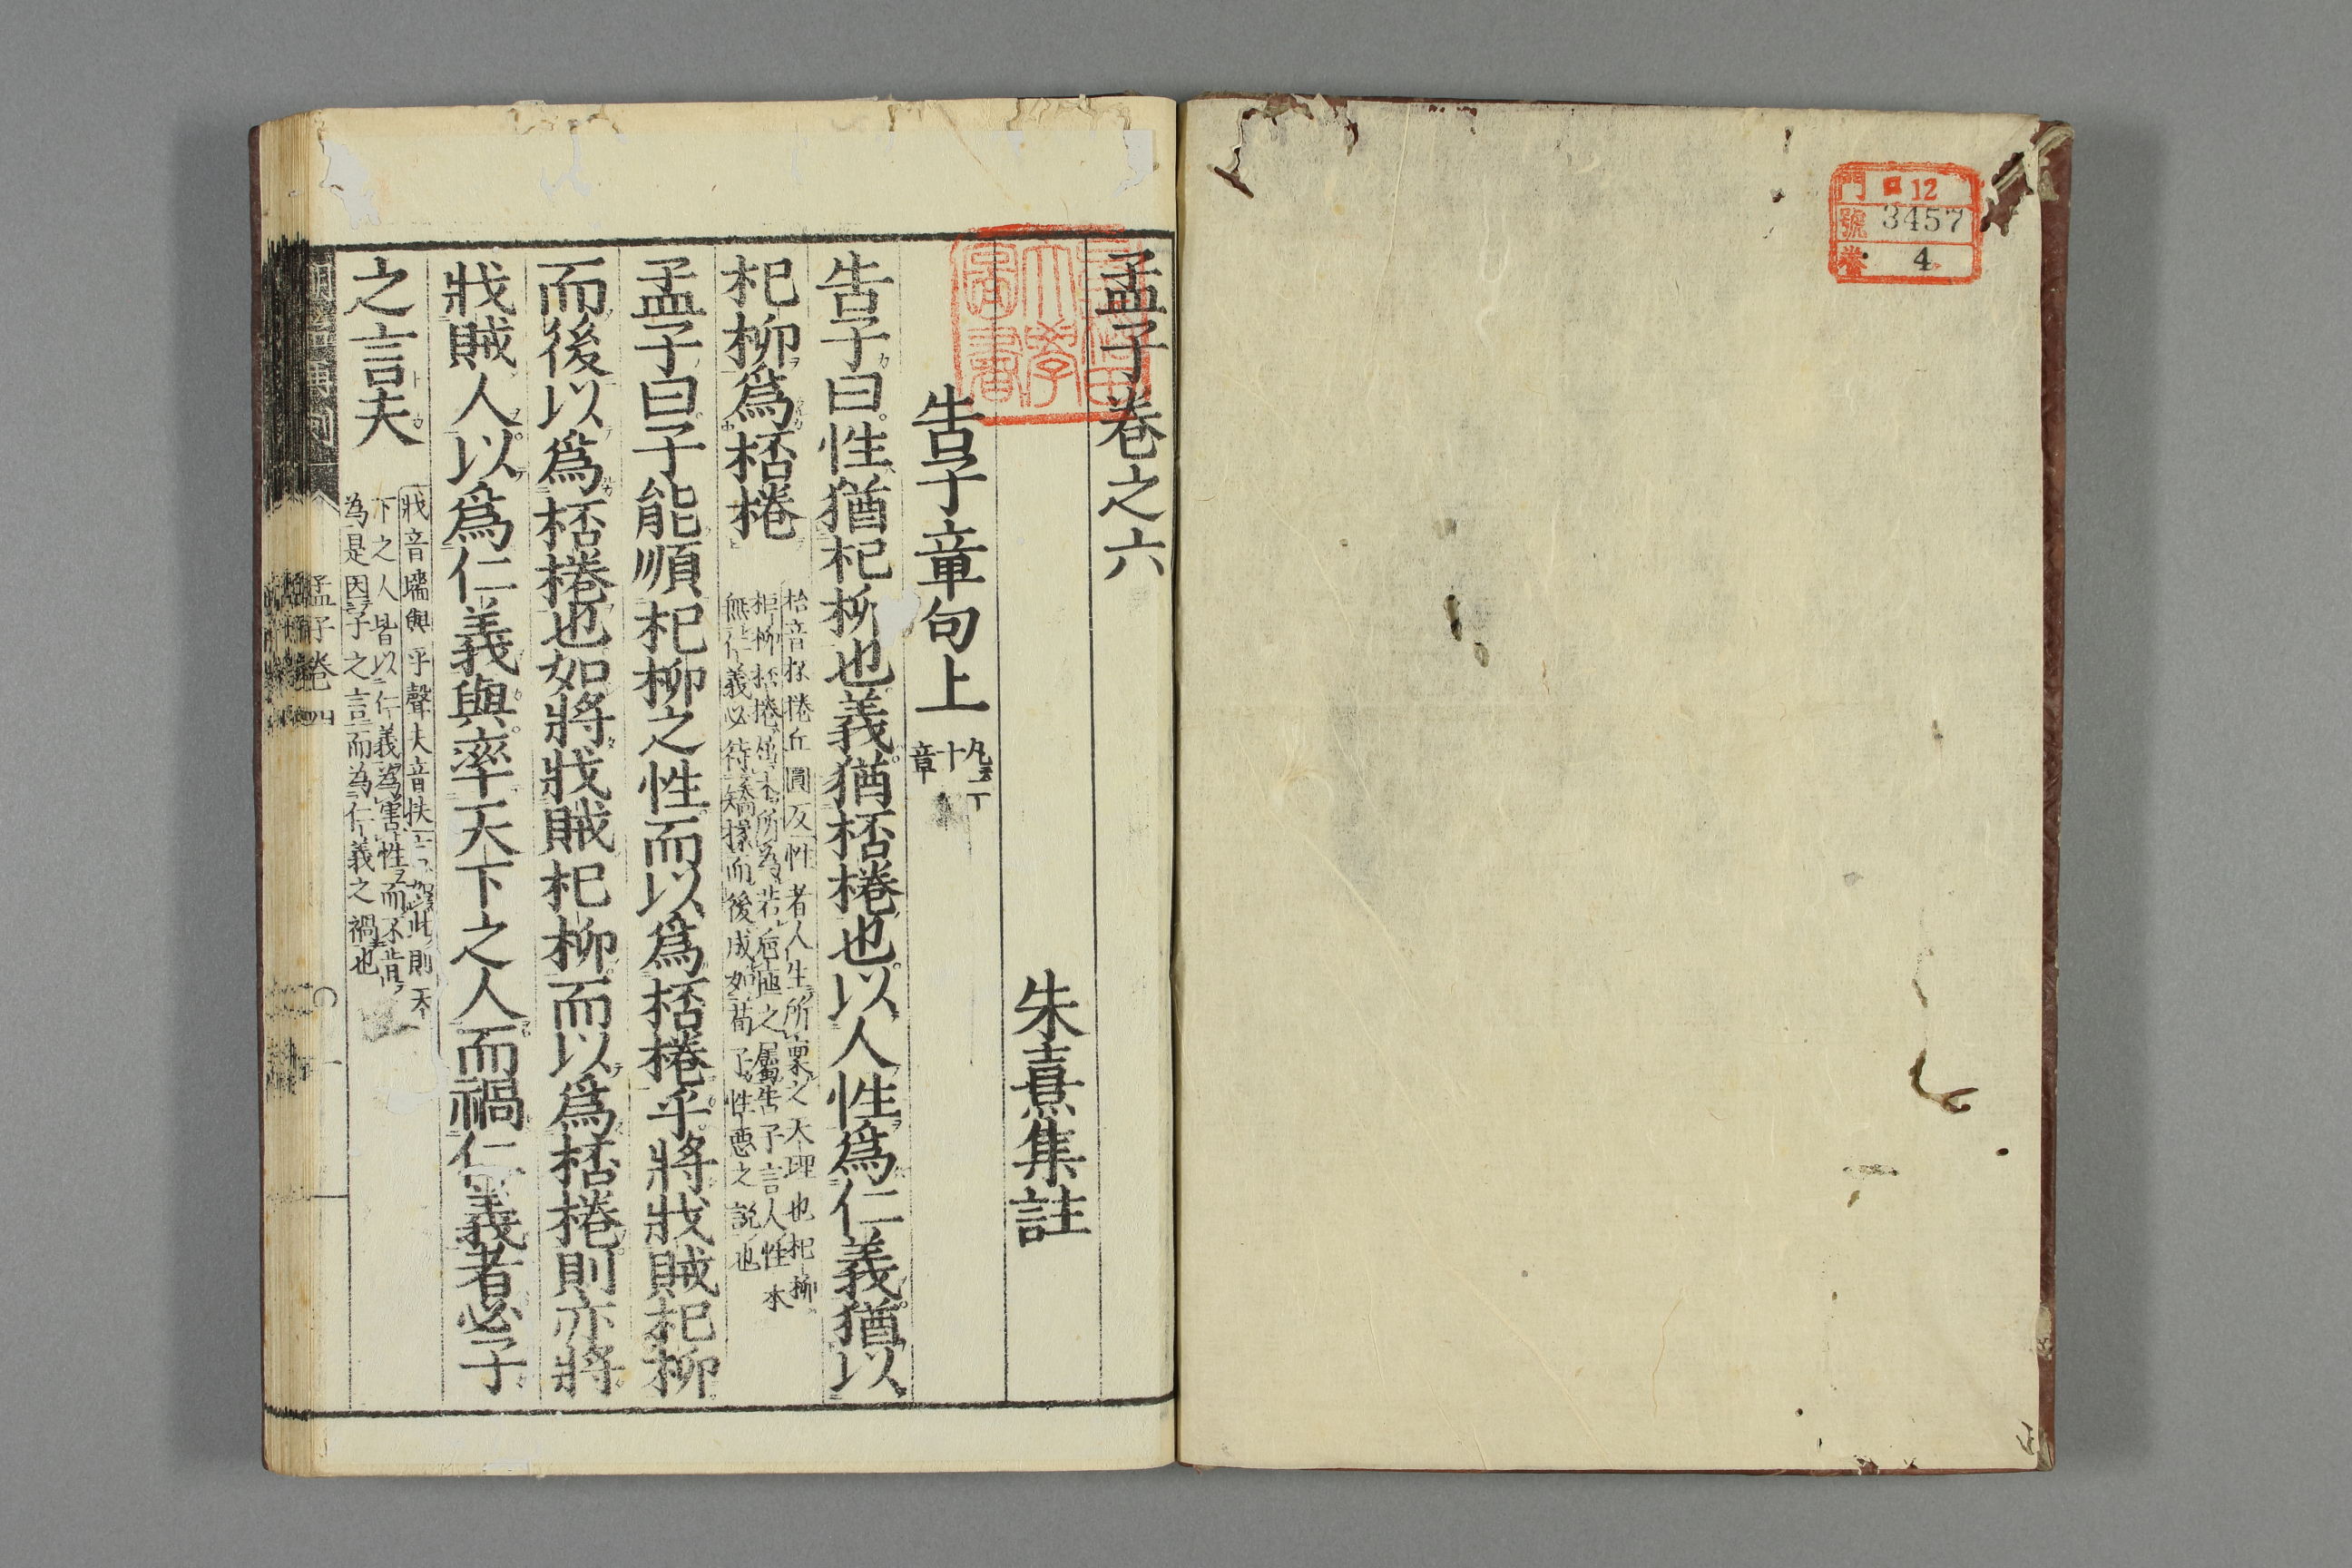 門 ロ 12
號 3457
卷 4
孟子卷之六
早稲田大學圖書
朱熹集註
告子章句上 凡二十章
告子曰性猶杞柳也義猶桮棬也以人性爲仁義猶以
杞柳爲桮棬
桮音杯棬丘圓反性者人生所稟之天理也杞柳
柜柳桮棬屈木所為若巵匜之屬告子言人性本
無仁義必待矯揉而後成如荀子性惡之說也
孟子曰子能順杞柳之性而以爲桮棬乎將戕賊杞柳
而後以爲桮棬也如將戕賊杞柳而以爲桮棬則亦將
戕賊人以爲仁義與率天下之人而禍仁義者必子
之言夫
戕音牆與平聲夫音扶言如此則天
下之人皆以仁義為害性而不肯
為是因子之言而為仁義之禍也
孟子卷四